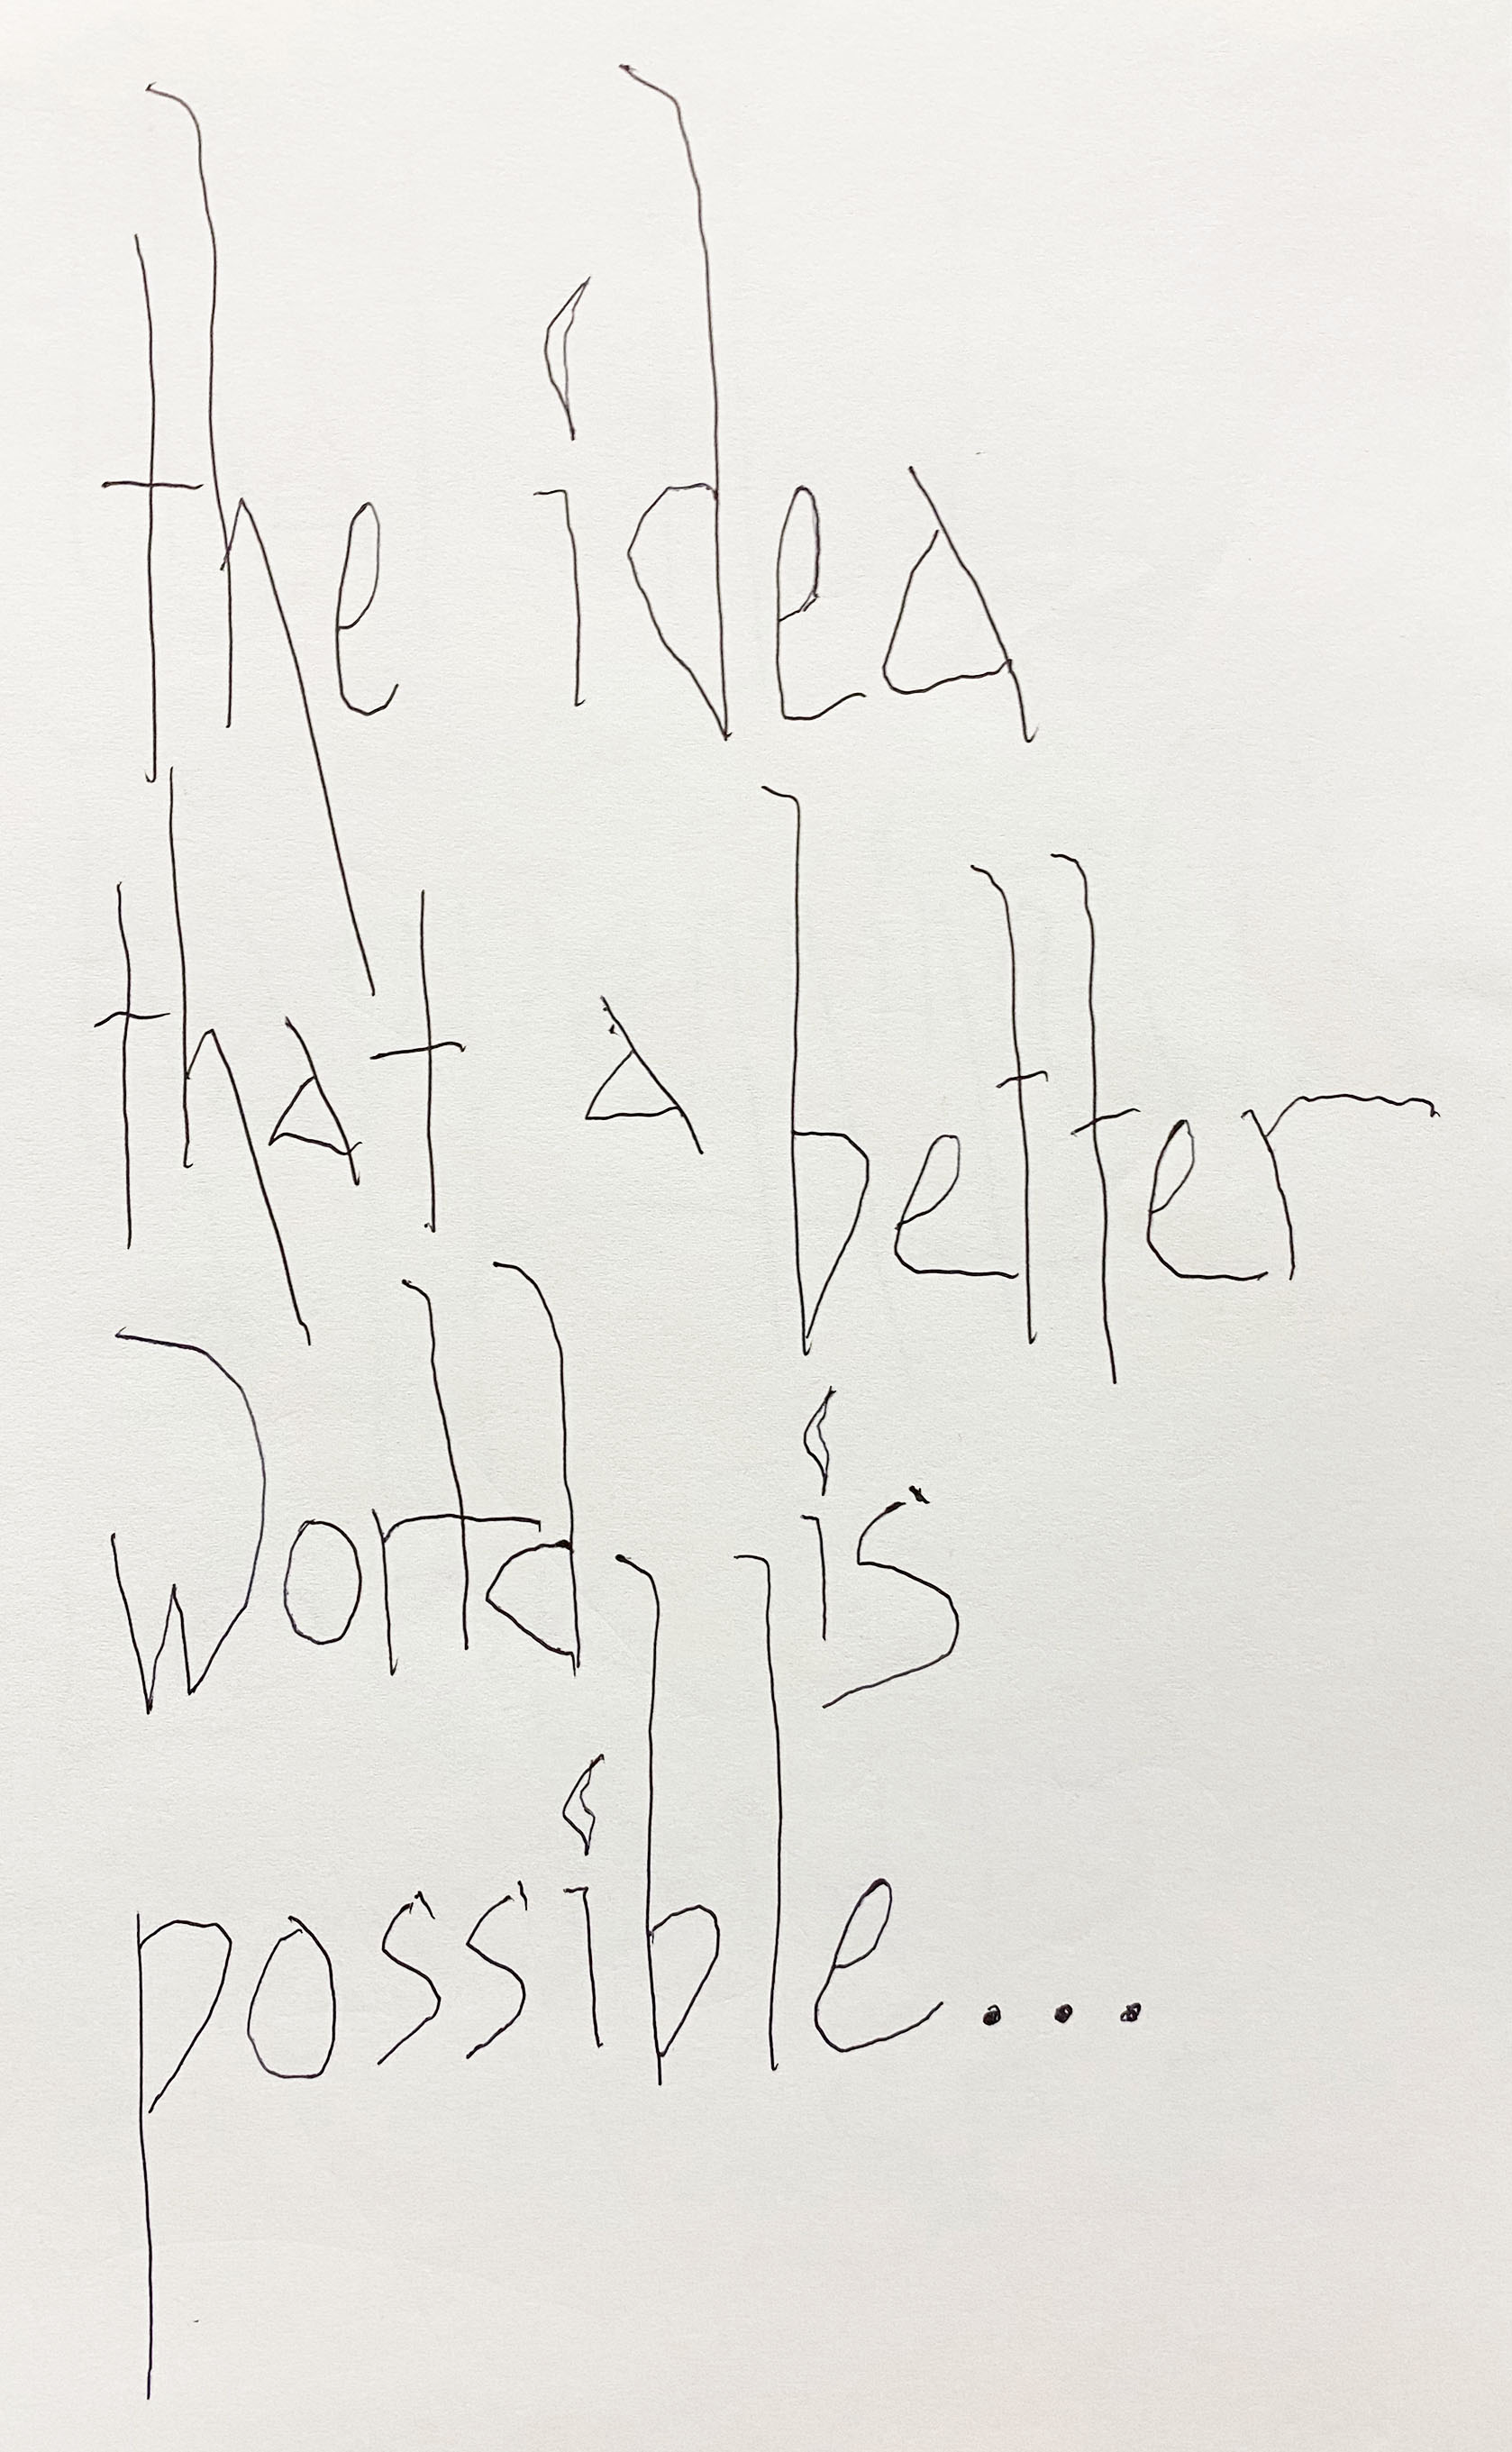 the idea
that a better
world is
possible...